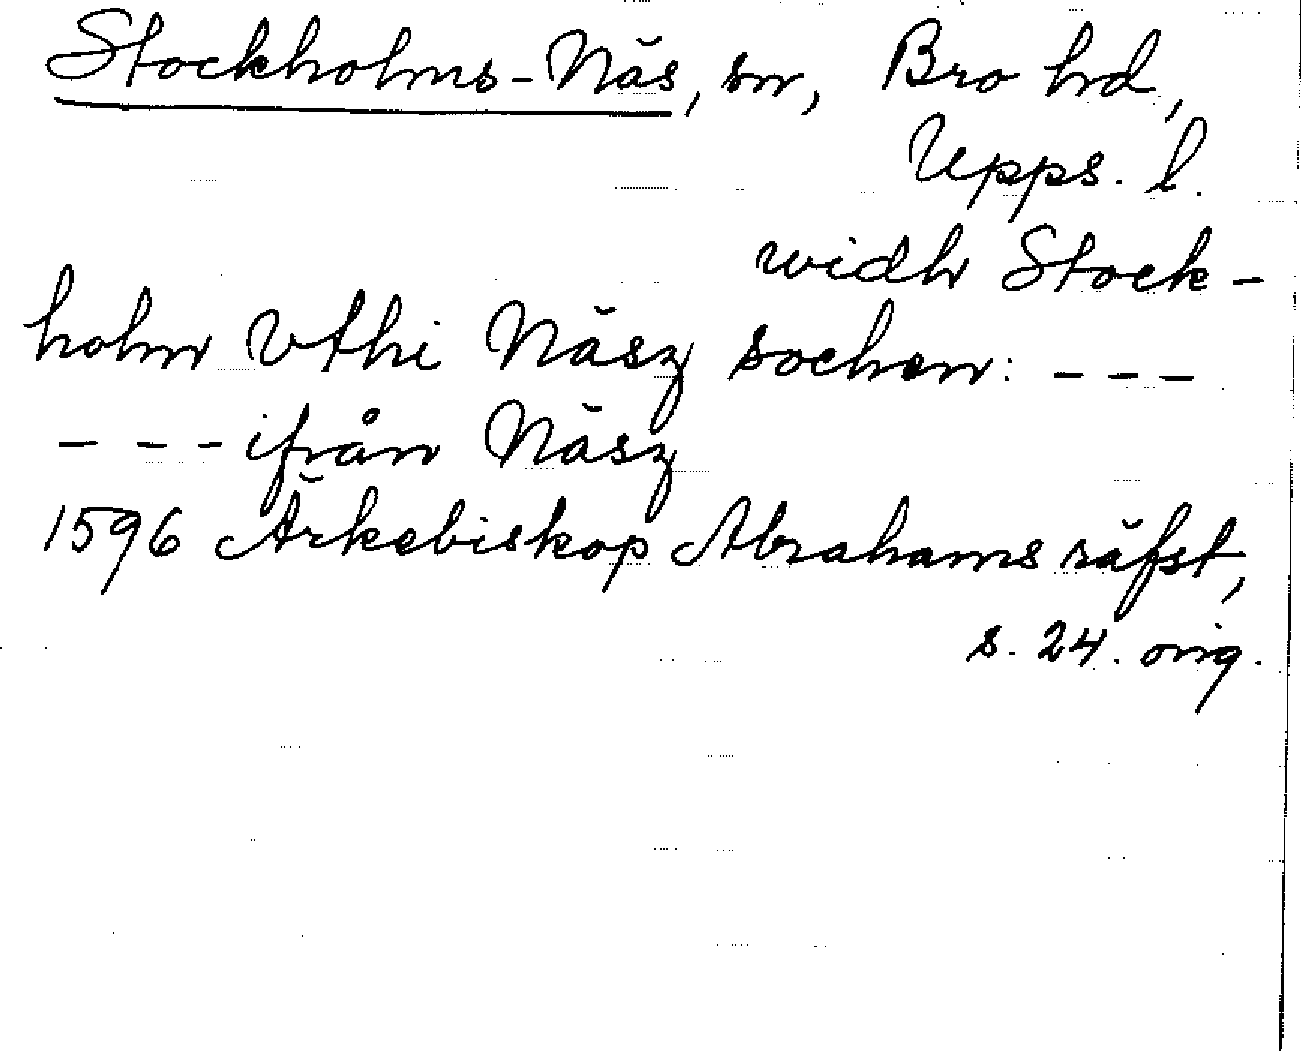 Stockholms-Näs, sn, Bro hd,
Upps. l.
widh Stock-
holm Vthi Näsz sochen: ---
--- ifrån Näsz
1596 Ärkebiskop Abrahams räfst,
s. 24. orig.